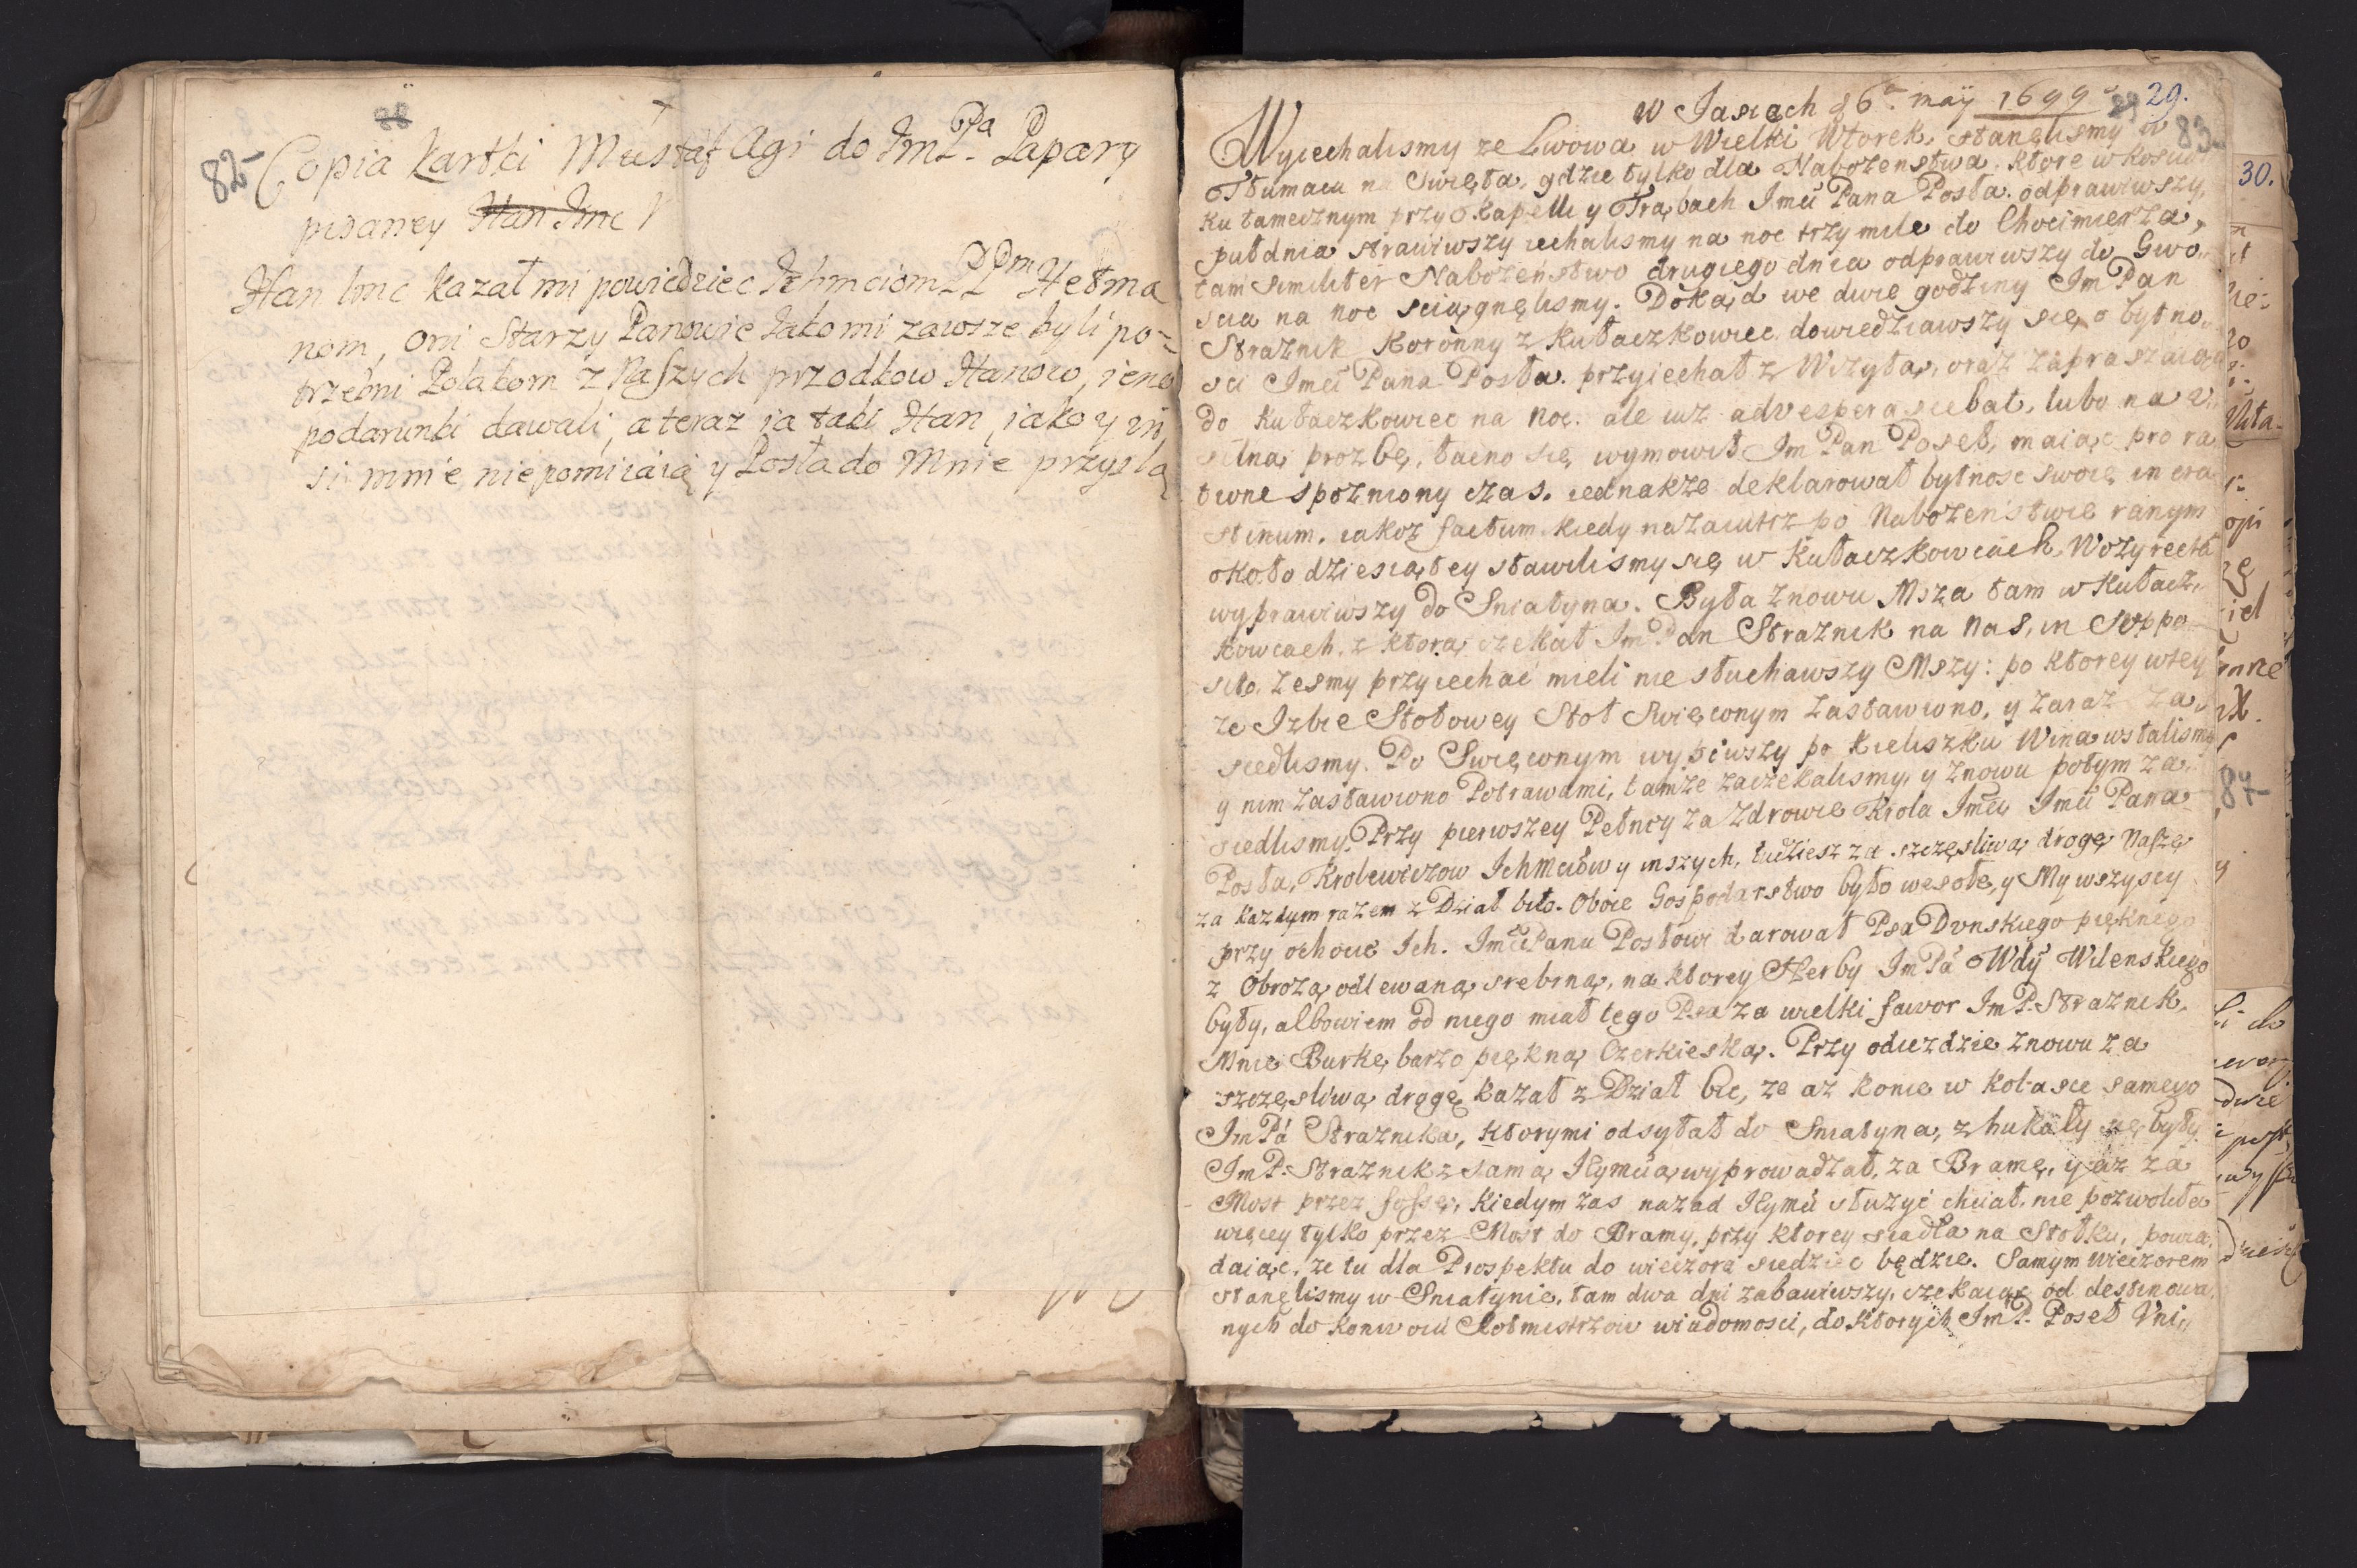 88
82
Copia Kartki Mustaf Agi do Im Pa Papary
pisaney Han Imc
Han Imc kazał mi powiedziec Ichmciom PPm Hetma
nom, oni Starzy Panowie łakomi zawsze byli po=
trzebni Polakom z Naszych przodkow Hanow, i one
podarunki dawali, a teraz ia taki Han, iako y in
si mnie niepomiiaią y Posła do Mnie przyslą
W Jasiech 86 maÿ 1699 29.
83
Wyiechalismy ze Lwowa w Wielki Wtorek, stanęlismy w
Tłumaczu na Swięta, gdzie tylko dla Nabozenstwa. ktore w kosciół
ku tamecznym przy Kapelli y Trąbach Imci Pana Posła. odprawiwszy,
południa strawiwszy iechalismy na noc trzy mile do Chocimierza,
tam similiter Nabozeństwo drugiego dnia odprawiwszy do Gwo„
scia na noc sciągnęlismy. Dokąd we dwie godziny Im Pan
Straznik Koronny z Kułaczkowiec dowiedziawszy się o bytno„
sci Imci Pana Posła. przyiechał z Wizytą, oraz zapraszaiąc
do Kułaczkowiec na noc. ale iuz advesperascebat, lubo na u„
silną prozbę, tacno się wymowił Im Pan Poseł, maiąc pro ra
tione spozniony czas. iednakze deklarował bytnosc swoię in cra
stinum. iakoz factum kiedy nazaiutrz po Nabozeństwie ranym
około dziesiątey stawilismy się w Kułaczkowcach Wozy rectà
wyprawiwszy do Sniatyna. Była znowu Msza tam w Kułacz„
kowcach, z ktorą czekał Im Pan Straznik na nas, in Suppo
sito zesmy przyiechać mieli nie słuchawszy Mszy: po ktorey w tey
ze Izbie Stołowey Stoł Swięconym zastawiono, y zaraz za„
siedlismy. Po Swięconym wypiwszy po kieliszku Wina wstalismy
y nim zastawiono Potrawami, tamze zaczekalismy, y znowu potym za„
siedlismy. Przy pierwszey Pełney za zdrowie Krola Imci Imci Pana
Posła, Krolewiczow Ichmciow y inszych, tudziesz za szczęsliwą drogę Naszę
za kazdym razem z Dział bito. Oboie Gospodarstwo było wesołe, y My wszyscy
przy ochocie Ich. Imci Panu Posłowi darował Psa Dunskiego pięknego
z Obrozą odlewaną srebrną, na ktorey Herby Im Pá Wdy Wilenskiego
były, albowiem od niego miał tego Psa za wielki fawor Im P. Straznik,
Mnie Burkę barzo piękną Czerkieską. Przy odiezdzie znowu za
szczęsliwą drogę kazał z Dział bic, ze az konie w kolasce samego
Im Pá Straznika, ktorymi odsyłał do Sniatyna, zhukały się były
Im P. Straznik z samą Ieymcią wyprowadzał, za Bramę, y az za
Most przez fossę, Kiedym zas nazad Ieymci słuzyć chciał, nie pozwoliła
więcey tylko przez Most do Bramy, przy ktorey siadła na Stołku, powia„
daiąc, ze tu dla Prospektu do wieczora siedziec będzie. Samym wieczorem
stanęlismy w Sniatynie, tam dwa dni zabawiwszy, czekaiąc od destinowa„
nych do konwoiu Rotmistrzow wiadomosci, do ktorych Im P. Poseł Vni„
30.
84